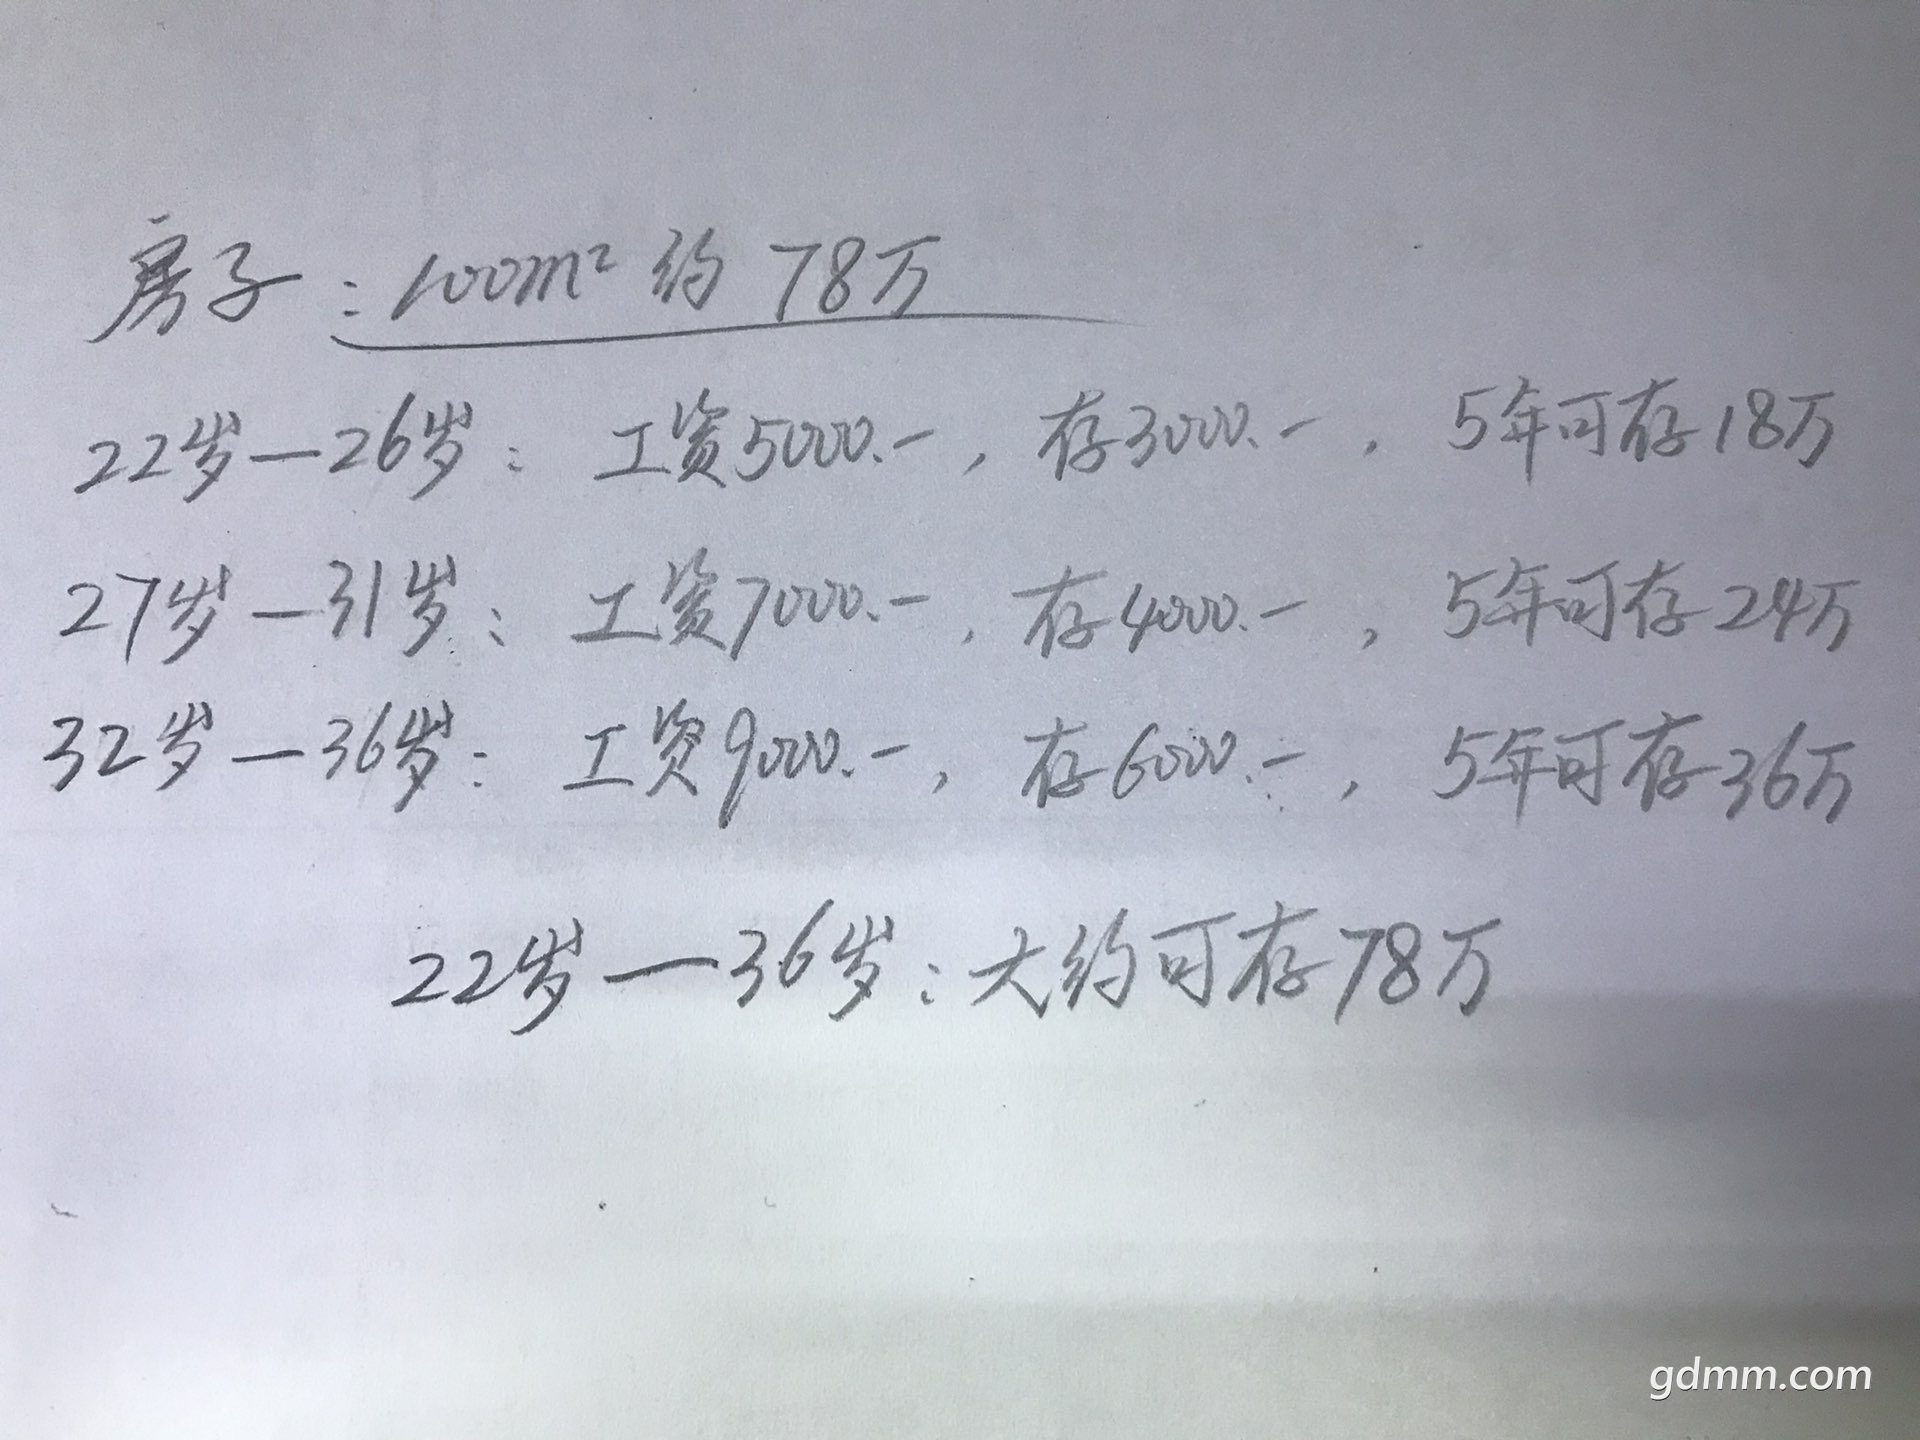 房子：100m² 约 78万
22岁—26岁：工资5000.一，存3000.一，5年可存18万
27岁—31岁：工资7000.一，存4000.一，5年可存24万
32岁—36岁：工资9000.一，存6000.一，5年可存36万
22岁—36岁：大约可存78万
gdmm.com